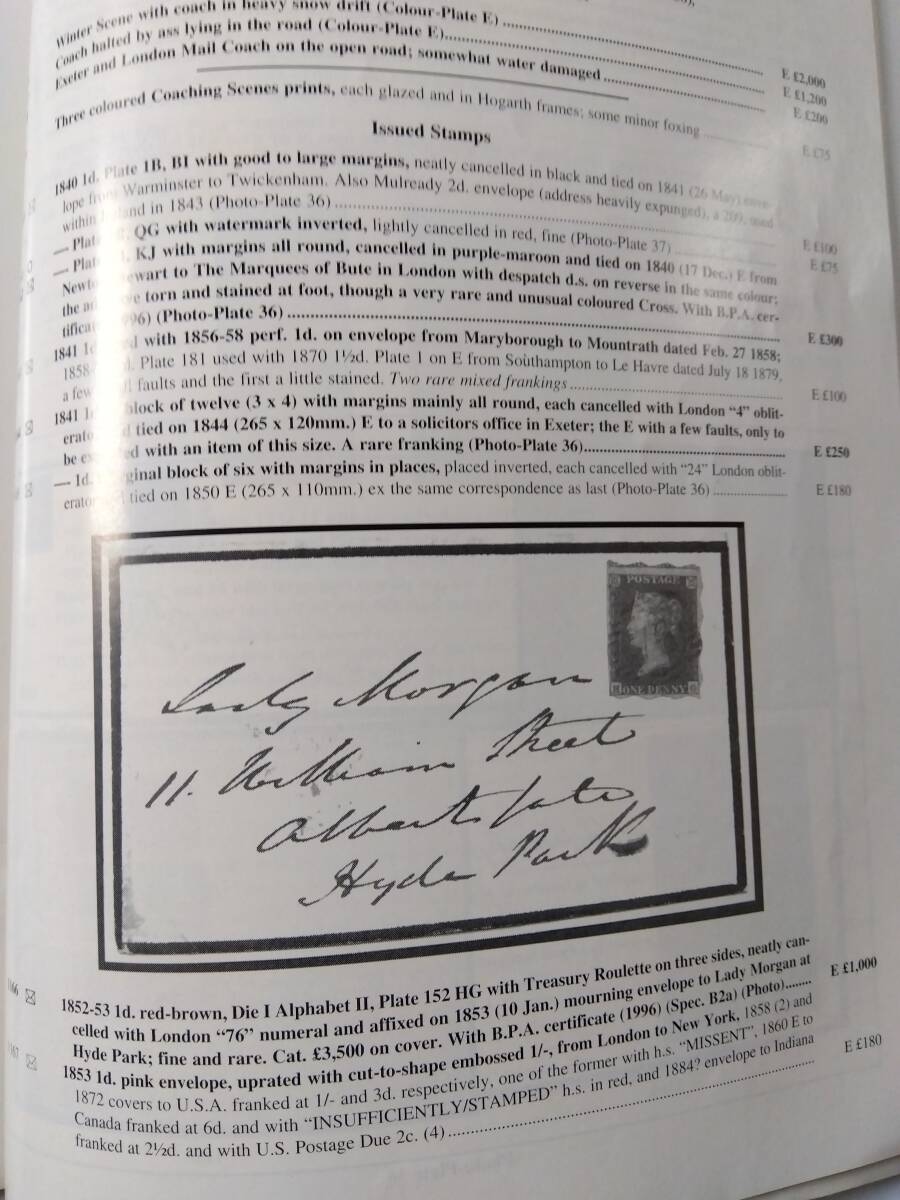 Winter Scene with coach in heavy snow drift (Colour-Plate E) E £2,000
Coach halted by ass lying in the road (Colour-Plate E) E £1,200
Exeter and London Mail Coach on the open road; somewhat water damaged E £200
Three coloured Coaching Scenes prints, each glazed and in Hogarth frames; some minor foxing E £75
Issued Stamps
1840 1d. Plate 1B, BI with good to large margins, neatly cancelled in black and tied on 1841 (26 May) enve-
lope from Warminster to Twickenham. Also Mulready 2d. envelope (address heavily expunged), a 209, used
within and in 1843 (Photo-Plate 36) E £100
— Plat QG with watermark inverted, lightly cancelled in red, fine (Photo-Plate 37) E £75
— Plat KJ with margins all round, cancelled in purple-maroon and tied on 1840 (17 Dec.) E from
Newto ewart to The Marquees of Bute in London with despatch d.s. on reverse in the same colour;
the a e torn and stained at foot, though a very rare and unusual coloured Cross. With B.P.A. cer-
tifica 96) (Photo-Plate 36) E £300
1841 1d d with 1856-58 perf. 1d. on envelope from Maryborough to Mountrath dated Feb. 27 1858;
1858 d. Plate 181 used with 1870 1½d. Plate 1 on E from Southampton to Le Havre dated July 18 1879,
a few faults and the first a little stained. Two rare mixed frankings E £100
1841 1 block of twelve (3 x 4) with margins mainly all round, each cancelled with London “4” oblit-
erato d tied on 1844 (265 x 120mm.) E to a solicitors office in Exeter; the E with a few faults, only to
be e ed with an item of this size. A rare franking (Photo-Plate 36) E £250
— 1d. ginal block of six with margins in places, placed inverted, each cancelled with “24” London oblit-
erato tied on 1850 E (265 x 110mm.) ex the same correspondence as last (Photo-Plate 36) E £180
POSTAGE
ONE PENNY
Lady Morgan
11. William Street
Albert Gate
Hyde Park
1852-53 1d. red-brown, Die I Alphabet II, Plate 152 HG with Treasury Roulette on three sides, neatly can-
celled with London “76” numeral and affixed on 1853 (10 Jan.) mourning envelope to Lady Morgan at
Hyde Park; fine and rare. Cat. £3,500 on cover. With B.P.A. certificate (1996) (Spec. B2a) (Photo) E £1,000
1853 1d. pink envelope, uprated with cut-to-shape embossed 1/-, from London to New York, 1858 (2) and
1872 covers to U.S.A. franked at 1/- and 3d. respectively, one of the former with h.s. “MISSENT”, 1860 E to
Canada franked at 6d. and with “INSUFFICIENTLY/STAMPED” h.s. in red, and 1884? envelope to Indiana
franked at 2½d. and with U.S. Postage Due 2c. (4) E £180